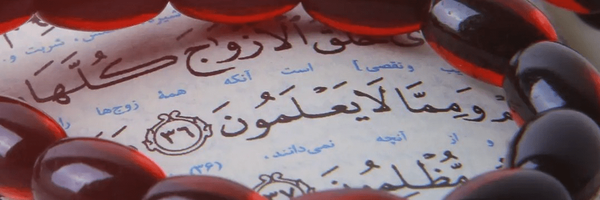 خَلَقَ ٱلْأَزْوَٰجَ كُلَّهَا
و نقصی] است آنکه همهٔ زوج‌ها را
وَمِمَّا لَا يَعْلَمُونَ ٣٦
و از آنچه نمی‌دانند. (۳۶)
مُّظْلِمُونَ ٣٧